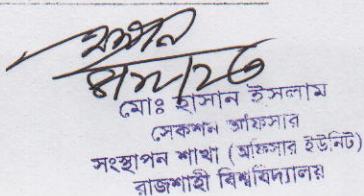 মোঃ হাসান ইসলাম
সেকশন অফিসার
সংস্থাপন শাখা (অফিসার ইউনিট)
রাজশাহী বিশ্ববিদ্যালয়